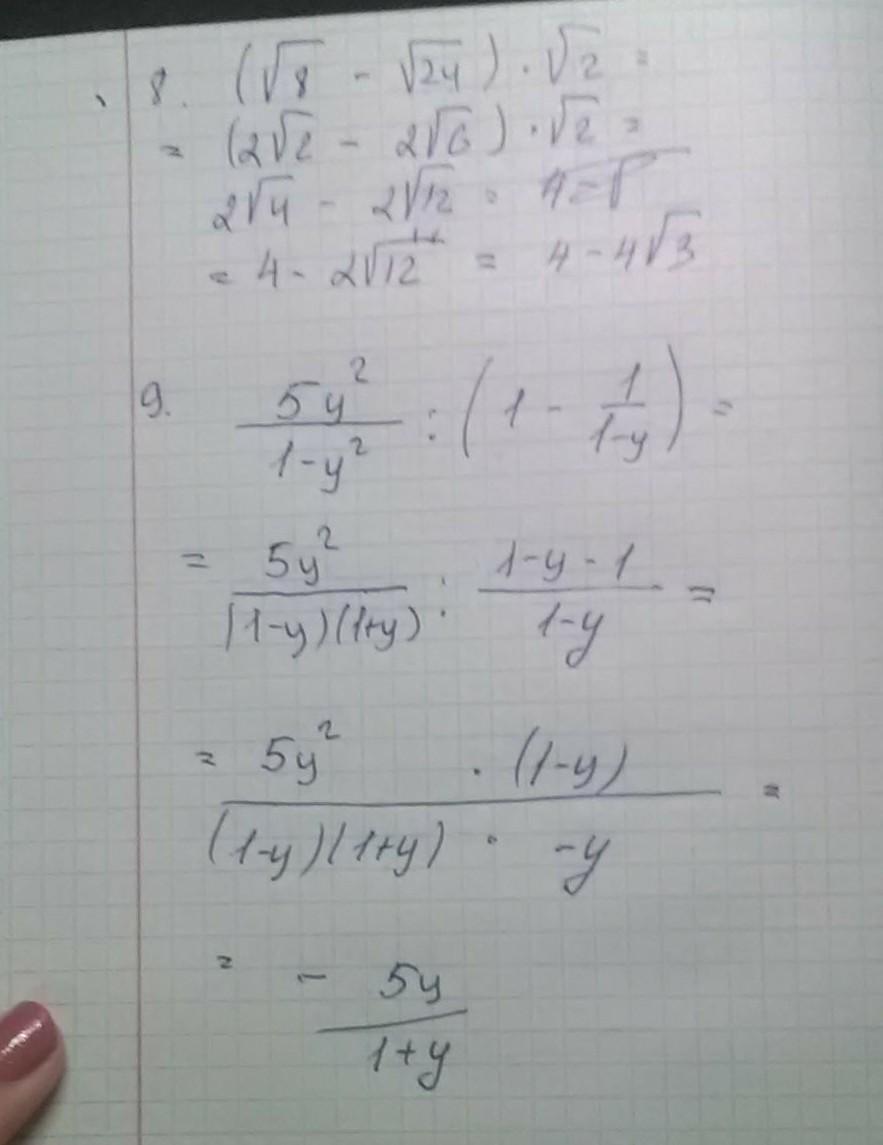 8. (√8 - √24) · √2 =
= (2√2 - 2√6) · √2 =
2√4 - 2√12 =
= 4 - 2√12 = 4 - 4√3
9. 5y² / (1-y²) : (1 - 1/(1-y)) =
= 5y² / (1-y)(1+y) : (1-y-1) / (1-y) =
= 5y² · (1-y) / (1-y)(1+y) · -y =
= - 5y / (1+y)